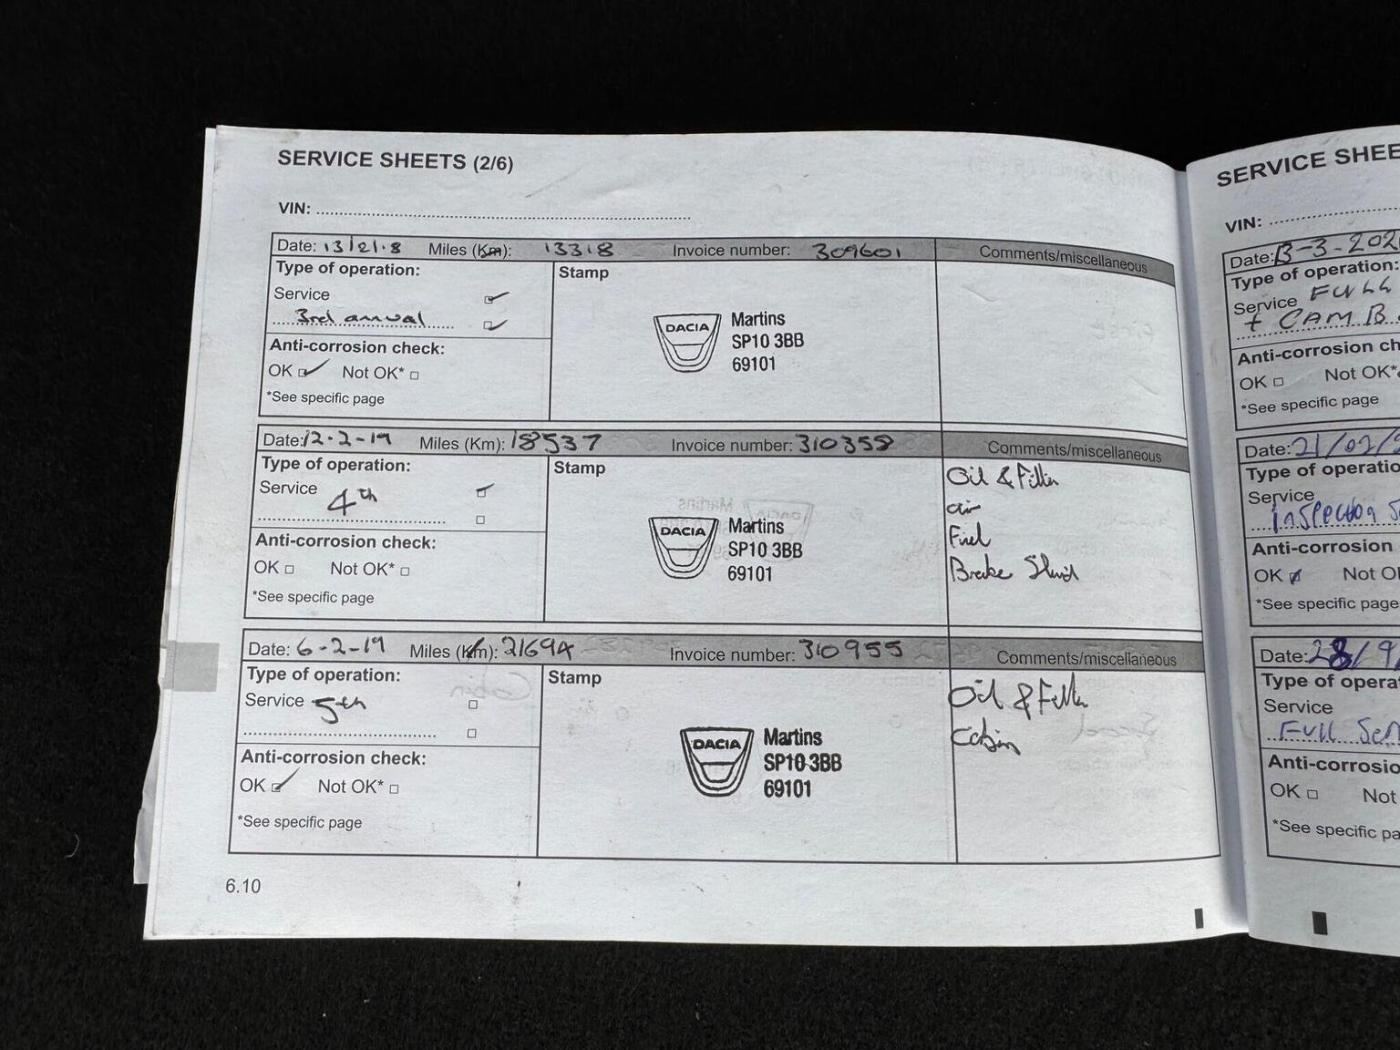 SERVICE SHEETS (2/6)
VIN:
Date: 13/2/18 Miles (Km): 13318 Invoice number: 309601 Comments/miscellaneous
Type of operation:
Stamp
Service
3rd annual
Anti-corrosion check:
OK Not OK*
*See specific page
DACIA
Martins
SP10 3BB
69101
Date: 12-2-19 Miles (Km): 18537 Invoice number: 310358 Comments/miscellaneous
Type of operation:
Stamp
Service 4th
Anti-corrosion check:
OK Not OK*
*See specific page
DACIA
Martins
SP10 3BB
69101
Oil & Filter
air
Fuel
Brake Fluid
Date: 6-2-19 Miles (Km): 21694 Invoice number: 310955 Comments/miscellaneous
Type of operation:
Stamp
Service 5th
Anti-corrosion check:
OK Not OK*
*See specific page
DACIA
Martins
SP10 3BB
69101
Oil & Filter
Cabin
6.10
SERVICE SHEE
VIN:
Date: 13-3-202
Type of operation:
Service FULL
+ CAM B
Anti-corrosion ch
OK Not OK*
*See specific page
Date: 21/02/2
Type of operatio
Service
Inspection S
Anti-corrosion
OK Not O
*See specific page
Date: 28/9
Type of opera
Service
Full Ser
Anti-corrosio
OK Not
*See specific pa